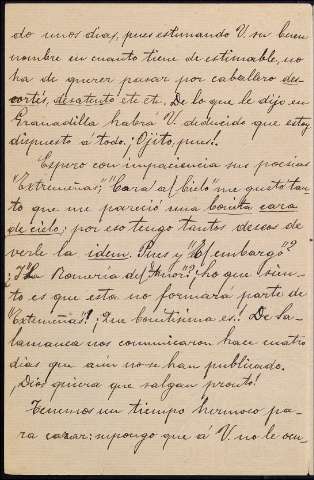 do unos dias, pues estimando V. su buen
nombre en cuanto tiene de estimable, no
ha de querer pasar por caballero des-
cortés, desatento etc etc. De lo que le dije en
Granadilla habrá V. deducido que estoy
dispuesto á todo. ¡Ojito, pues!.
Espero con impaciencia sus poesias
"Extremeñas"; "Cara al cielo" me gustó tan-
to que me pareció una bonita cara
de cielo; por eso tengo tantos deseos de
verle la idem. Pues y "El embargo"?
¿Y "La Romeria del Amor"? ¡Lo que sien-
to es que esta no formará parte de
"Extemeñas"! ¡Que bonitisima es! De Sa-
lamanca nos comunicaron hace cuatro
dias que aún no se han publicado.
¡Dios quiera que salgan pronto!
Tenemos un tiempo hermoso pa-
ra cazar: supongo que á V. no le ocu-